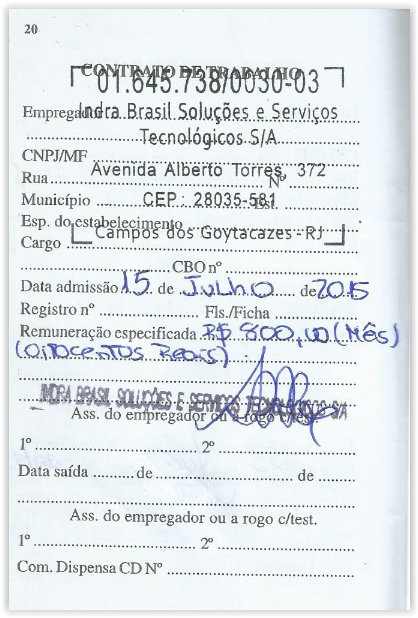 20
CONTRATO DE TRABALHO
01.645.738/0030-03
Empregador Indra Brasil Soluções e Serviços
Tecnológicos S/A
CNPJ/MF
Avenida Alberto Torres, 372
Rua Nº
Município CEP: 28035-581 Est.
Esp. do estabelecimento
Cargo Campos dos Goytacazes - RJ
CBO nº
Data admissão 15 de Julho de 2015
Registro nº Fls./Ficha
Remuneração especificada R$ 800,00 (Mês)
(Oitocentos Reais)
INDRA BRASIL SOLUÇÕES E SERVIÇOS TECNOLÓGICOS S/A
Ass. do empregador ou a rogo c/test.
1º 2º
Data saída de de
Ass. do empregador ou a rogo c/test.
1º 2º
Com. Dispensa CD Nº